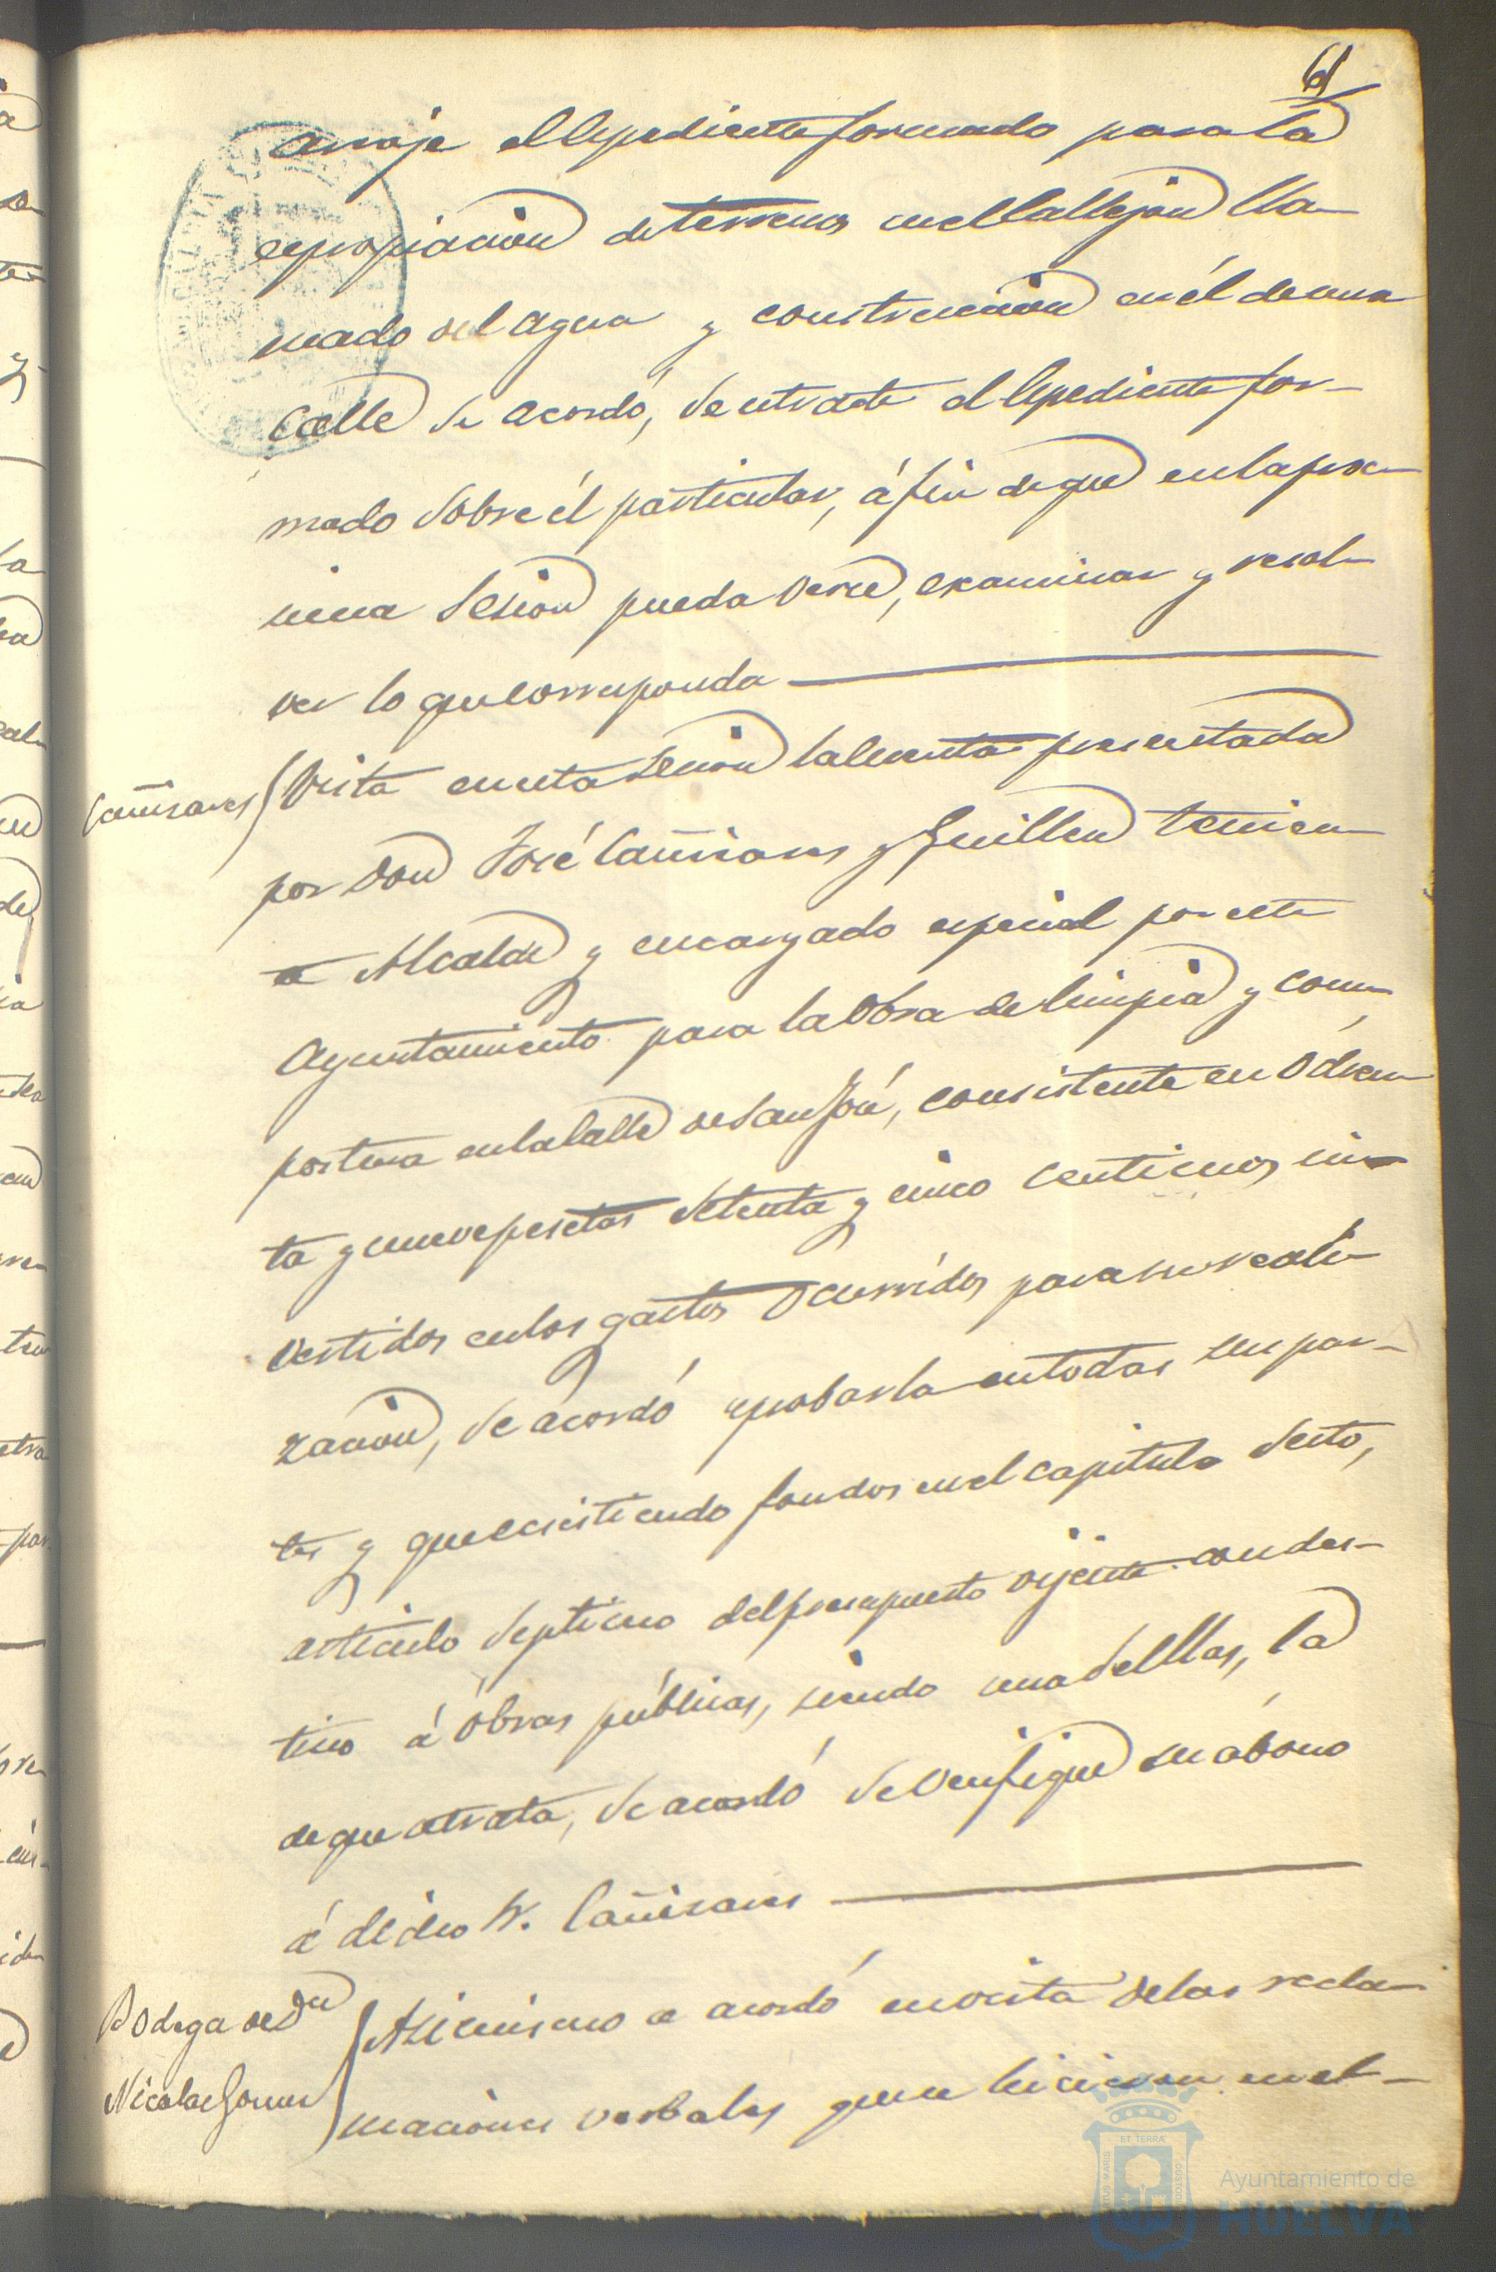 61
arroje el Espediente formado para la
expropiacion de terrenos en el Callejon lla-
mado del Agua y construccion en él de una
Calle se acordó, se estracte el Espediente for-
mado sobre él particular, á fin de que en la procsi-
ma Sesion pueda verse, examinar y resol-
ver lo que corresponda
Cañisares
Vista en esta Sesion la Cuenta presentada
por Don José Cañisares y Guillen tenien-
te Alcalde y encargado especial por este
Ayuntamiento para la Obra de limpia y com-
postura en la Calle de San José, consistente en Ochen-
ta y nueve pesetas setenta y cinco centimos in-
vertidos en los gastos Ocurridos para su reali-
zacion, se acordó aprobarla en todas sus par-
tes y que ecsistiendo fondos en el capitulo Sesto,
articulo Septimo del presupuesto vijente con des-
tino á Obras públicas, siendo una de Ellas, la
de que se trata, se acordó se verifique su abono
á dicho Sr. Cañisares
Bodega de Dn
Nicolas Gomez
Asi mismo se acordó en vista de las recla-
maciones verbales que se hicieron en el
ET TERRÆ
PORTUS MARIS
CUSTODIA
Ayuntamiento de
HUELVA